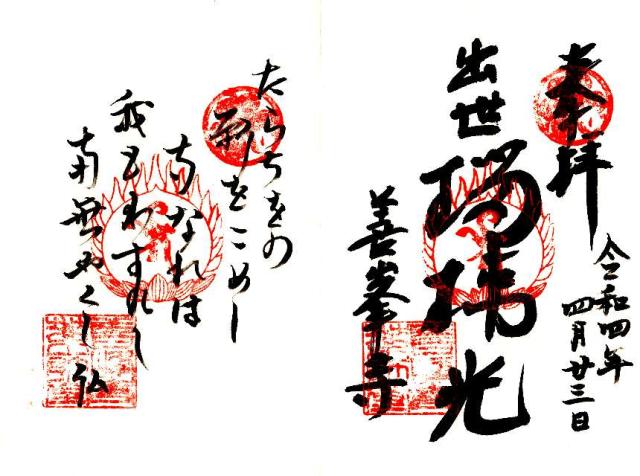 奉拝
令和四年
四月廿三日
出世瑠璃光
善峯寺
たらちをの
願をこめし
寺なれは
我もわすれし
南無やくし佛